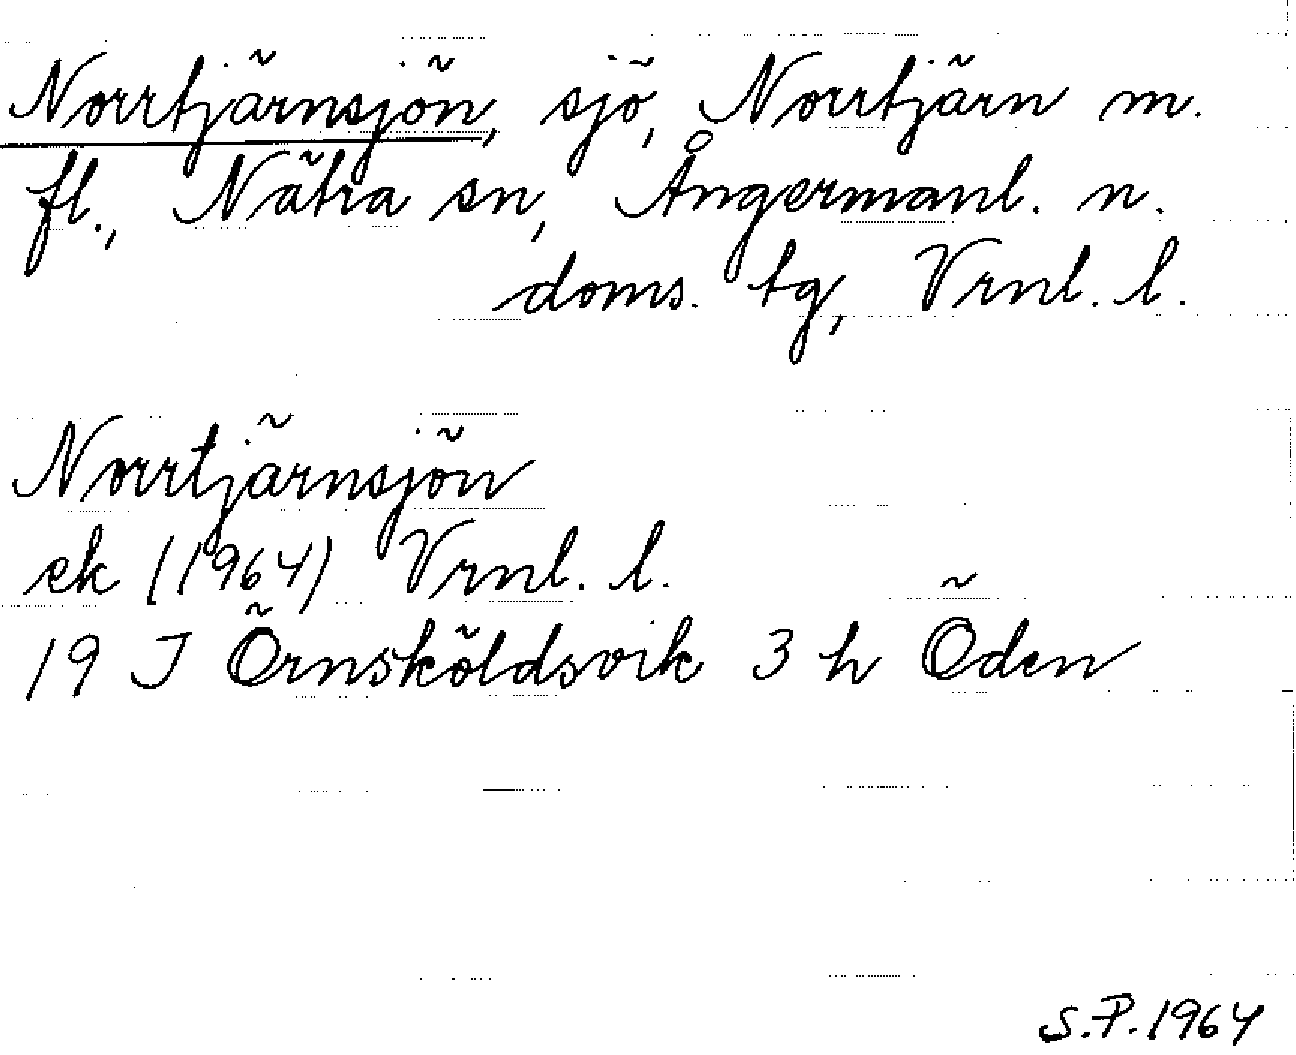 Norrtjärnsjön, sjö, Norrtjärn m.
fl., Nätra sn, Ångermanl. n.
doms. tg, Vrnl. l.
Norrtjärnsjön
ek (1964) Vrnl. l.
19 J Örnsköldsvik 3 h Öden
S.P. 1964